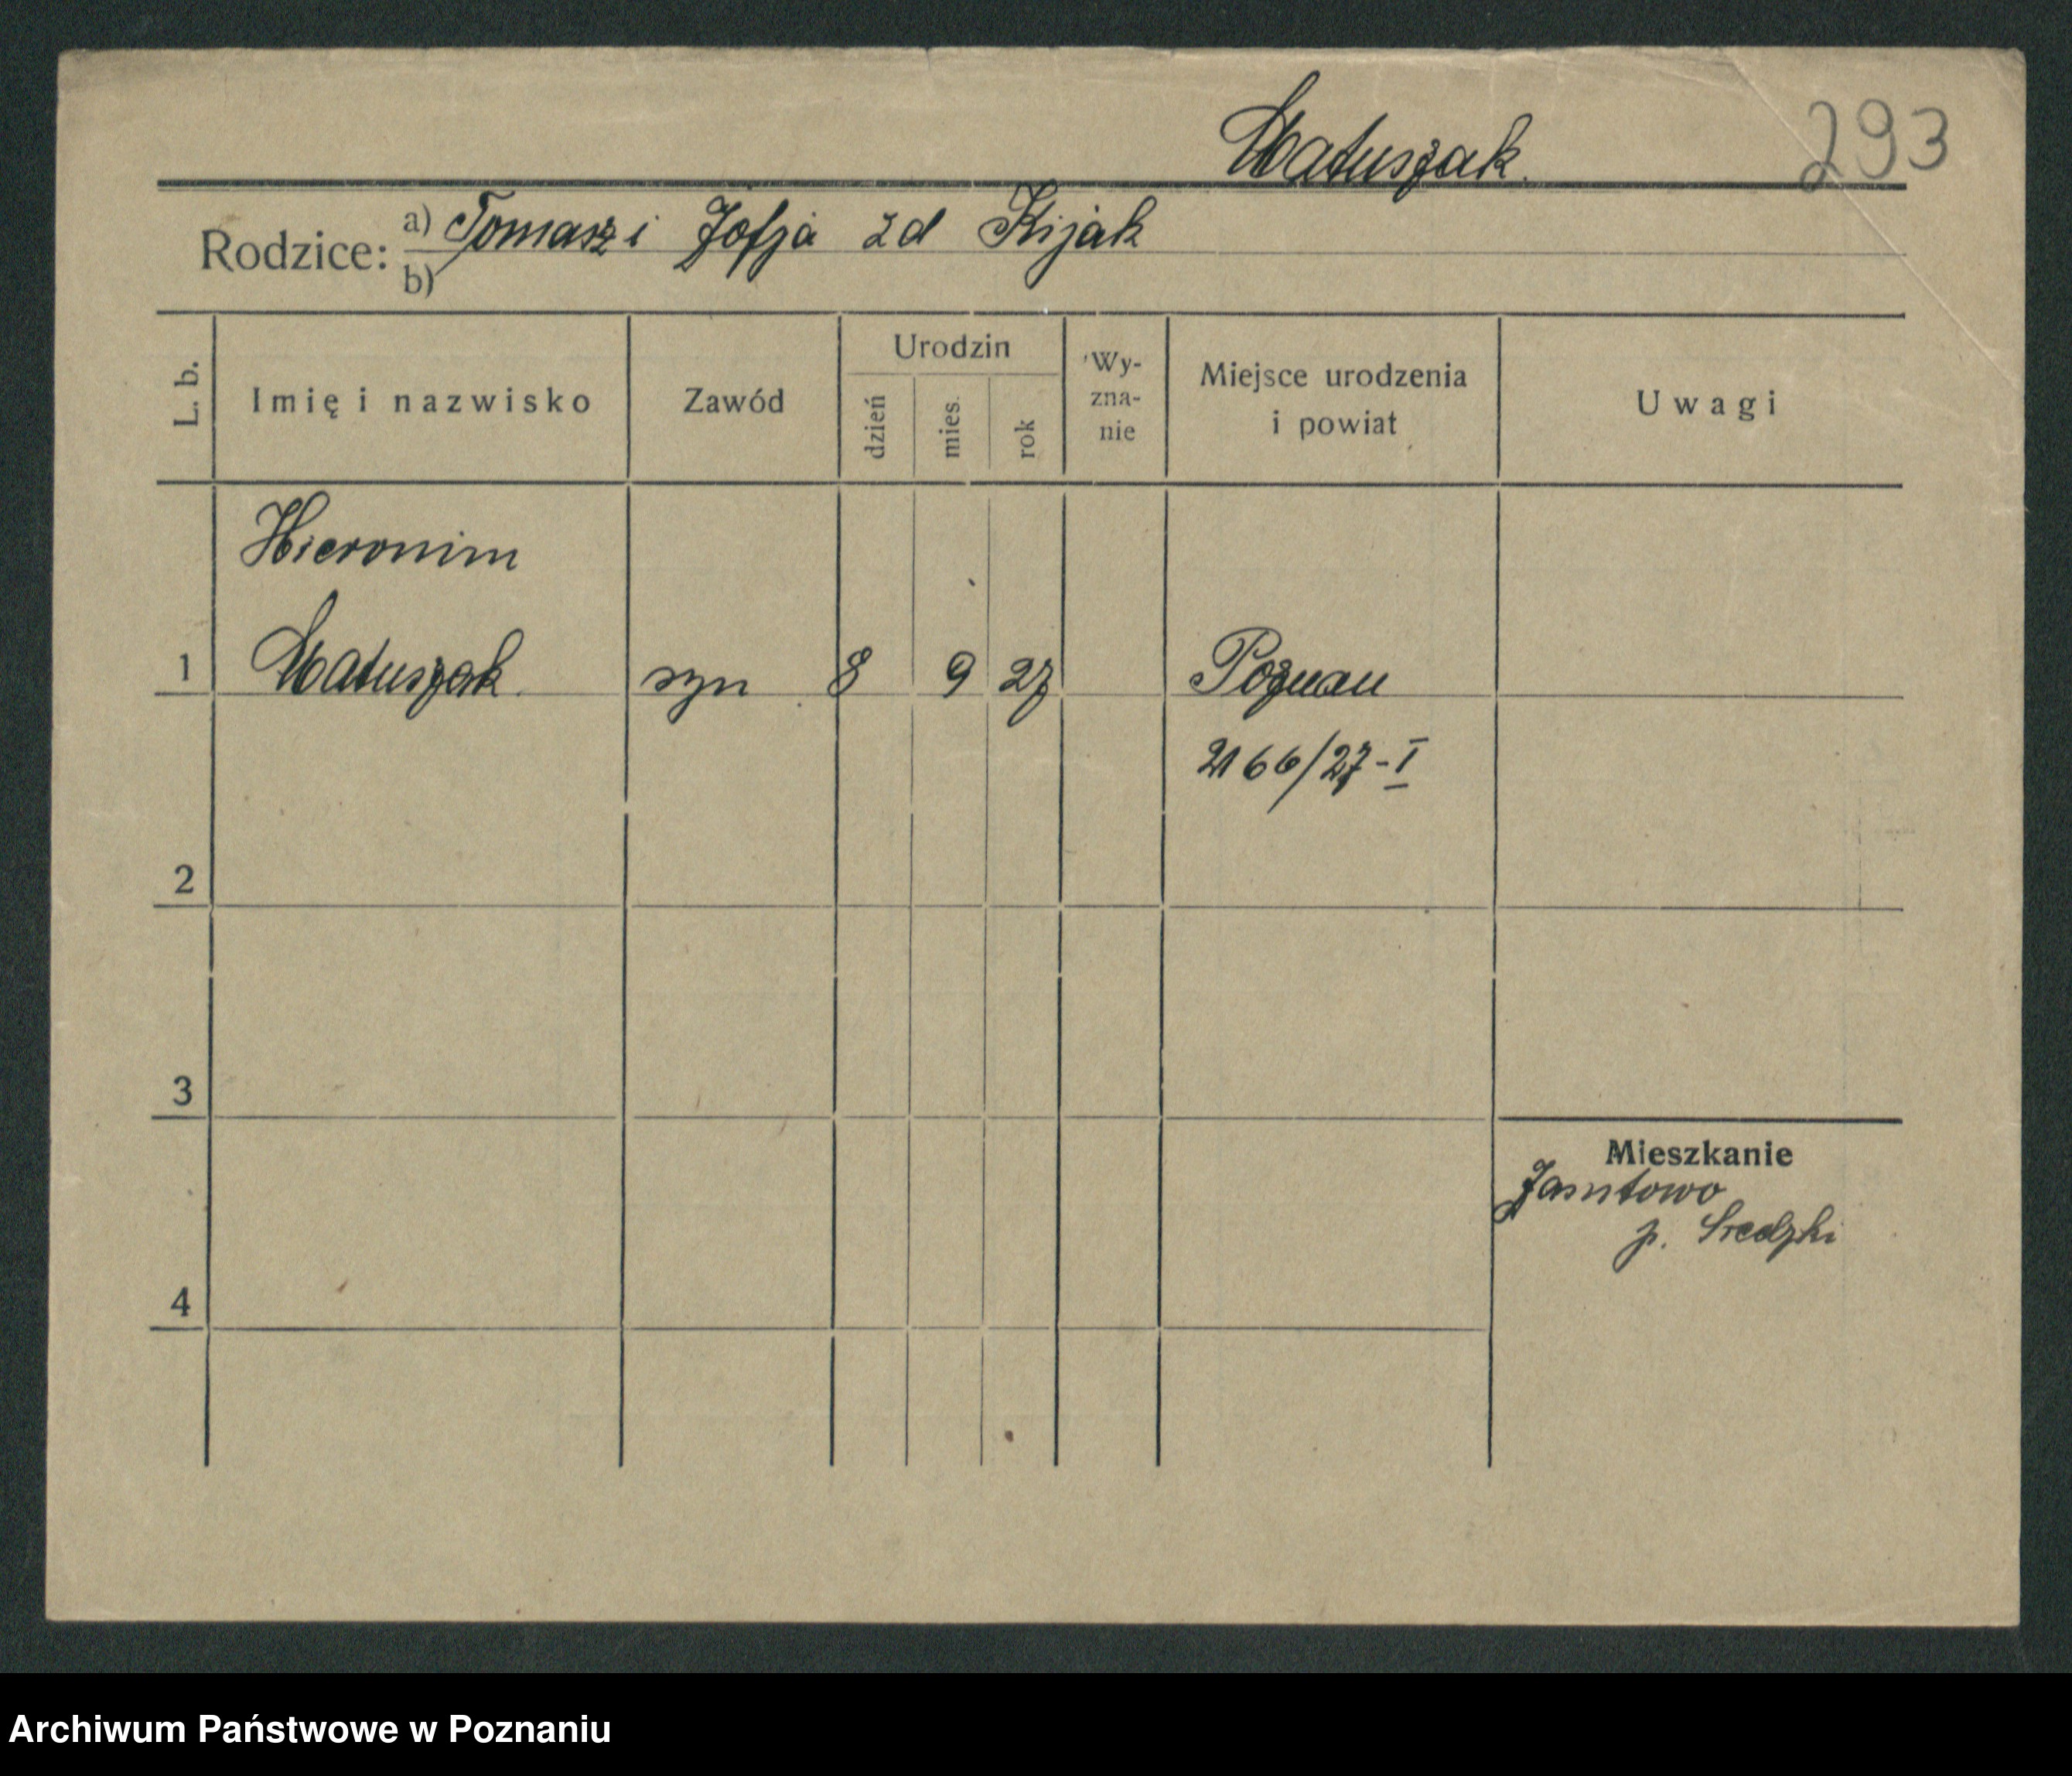 Matuszak.
293
Rodzice: a) Tomasz i Zofja zd Kijak
b)
L. b.
Imię i nazwisko
Zawód
Urodzin
dzień
mies.
rok
Wy-
zna-
nie
Miejsce urodzenia
i powiat
Uwagi
Hieronim
1 Matuszak. syn 8 9 27 Poznan
2166/27-I
2
3
Mieszkanie
p. Sredzki
4
Archiwum Państwowe w Poznaniu